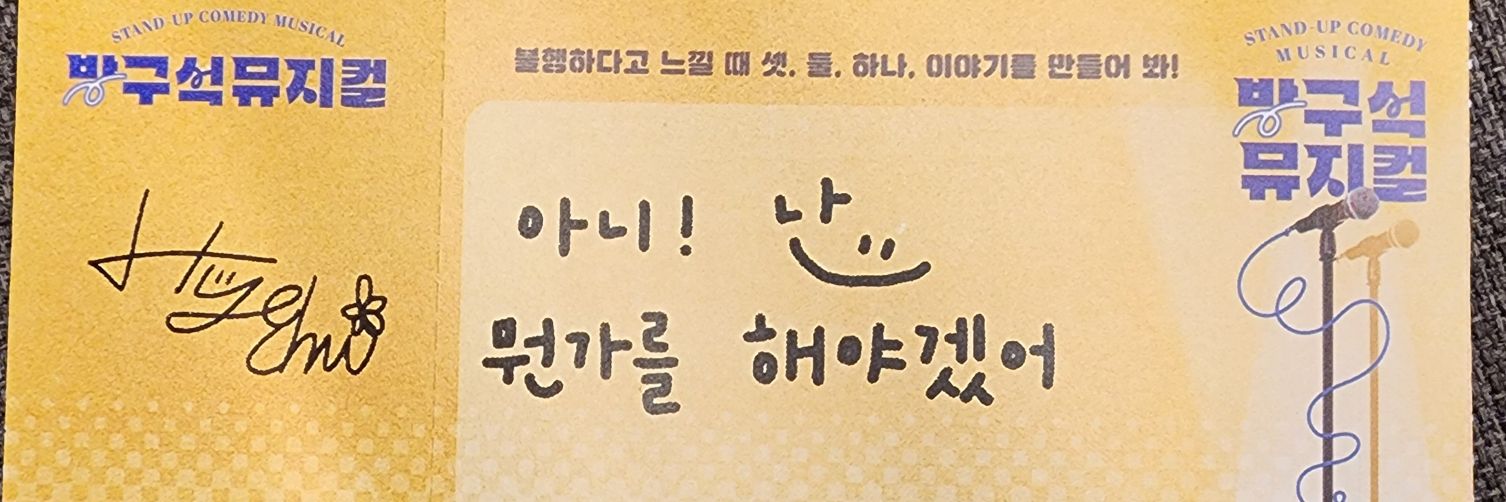 STAND-UP COMEDY MUSICAL
방구석뮤지컬
불행하다고 느낄 때 셋, 둘, 하나, 이야기를 만들어 봐!
아니! 나
뭔가를 해야겠어
STAND-UP COMEDY
MUSICAL
방구석
뮤지컬